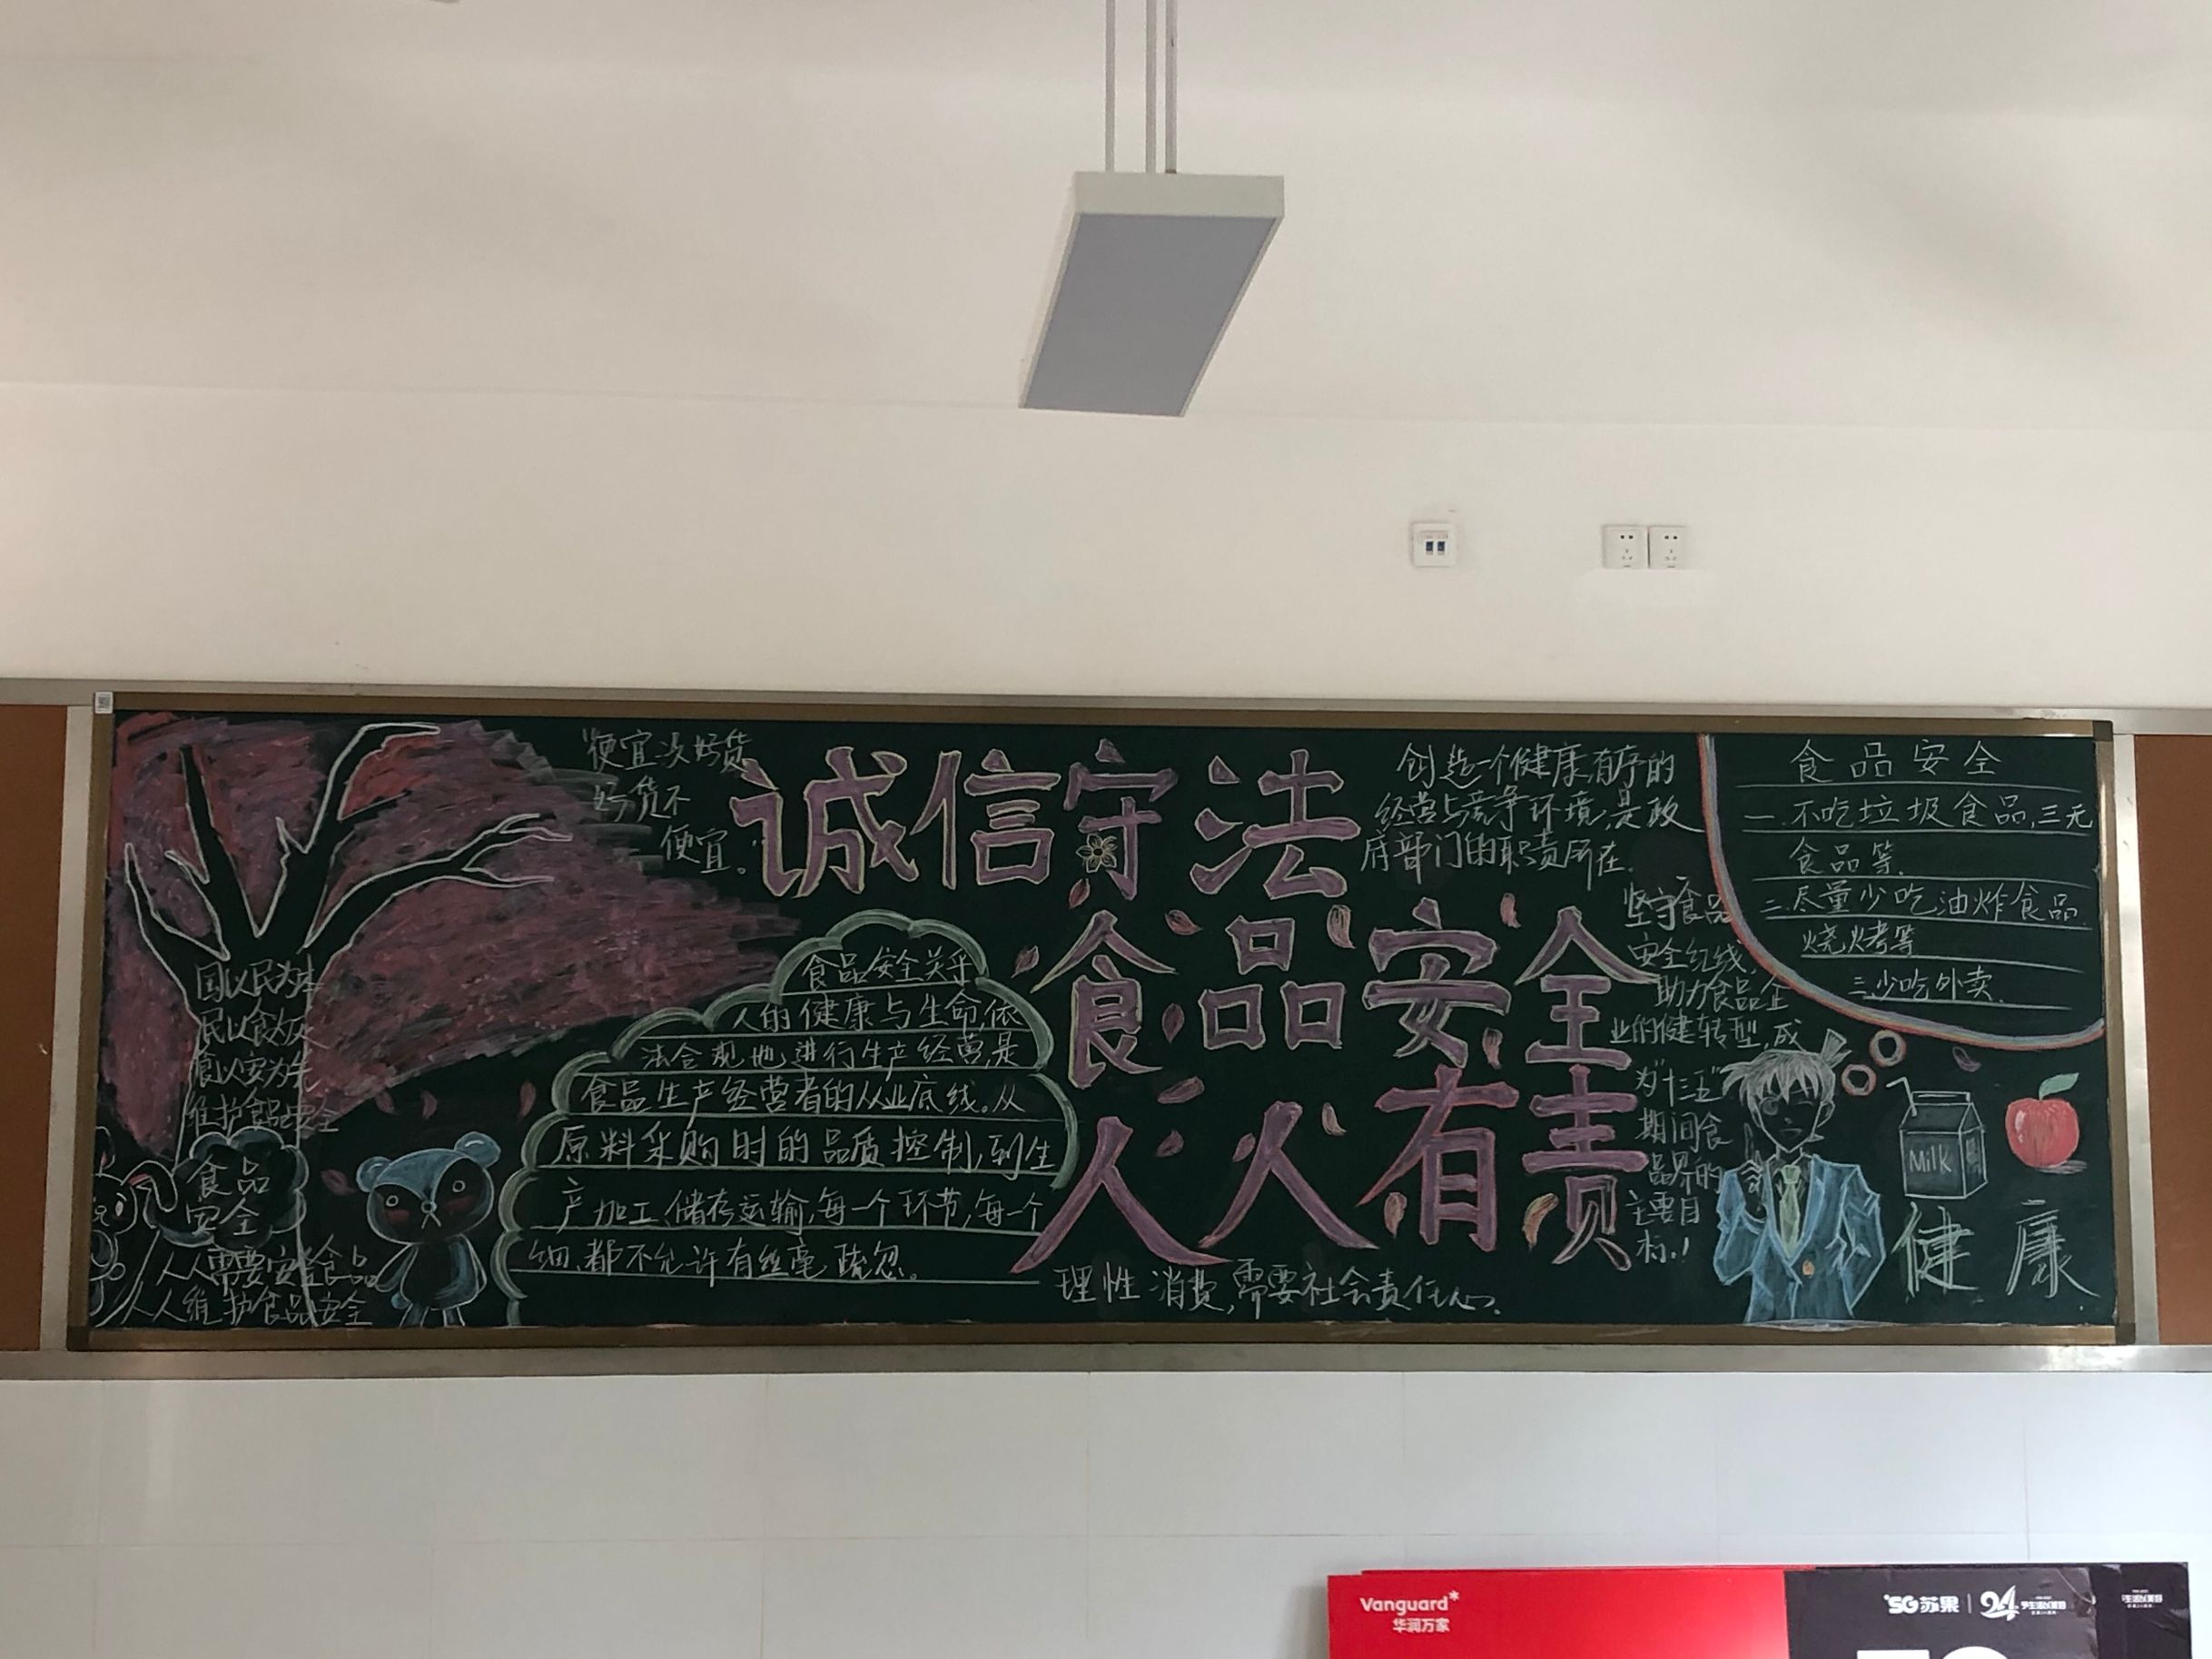 "便宜没好货
好货不
便宜。
诚信守法
食品安全
人人有责
创造一个健康有序的
经营与竞争环境,是政
府部门的职责所在.
坚守食品
安全红线,
助力食品企
业的健转型,成
为"十三五"
期间食
品界的
主要目
标.!
食品安全
一.不吃垃圾食品,三无
食品等.
二.尽量少吃油炸食品
烧烤等
三.少吃外卖.
国以民为本
民以食为天
食以安为先
维护食品安全
食品
安全
人人需要安全食品
人人维护食品安全
食品安全关乎
人的健康与生命,依
法合规地进行生产经营,是
食品生产经营者的从业底线。从
原料采购时的品质控制,到生
产加工、储存运输,每一个环节,每一个
细,都不允许有丝毫疏忽。
理性消费,需要社会责任心.
Milk
健康
Vanguard
华润万家
SG苏果
24